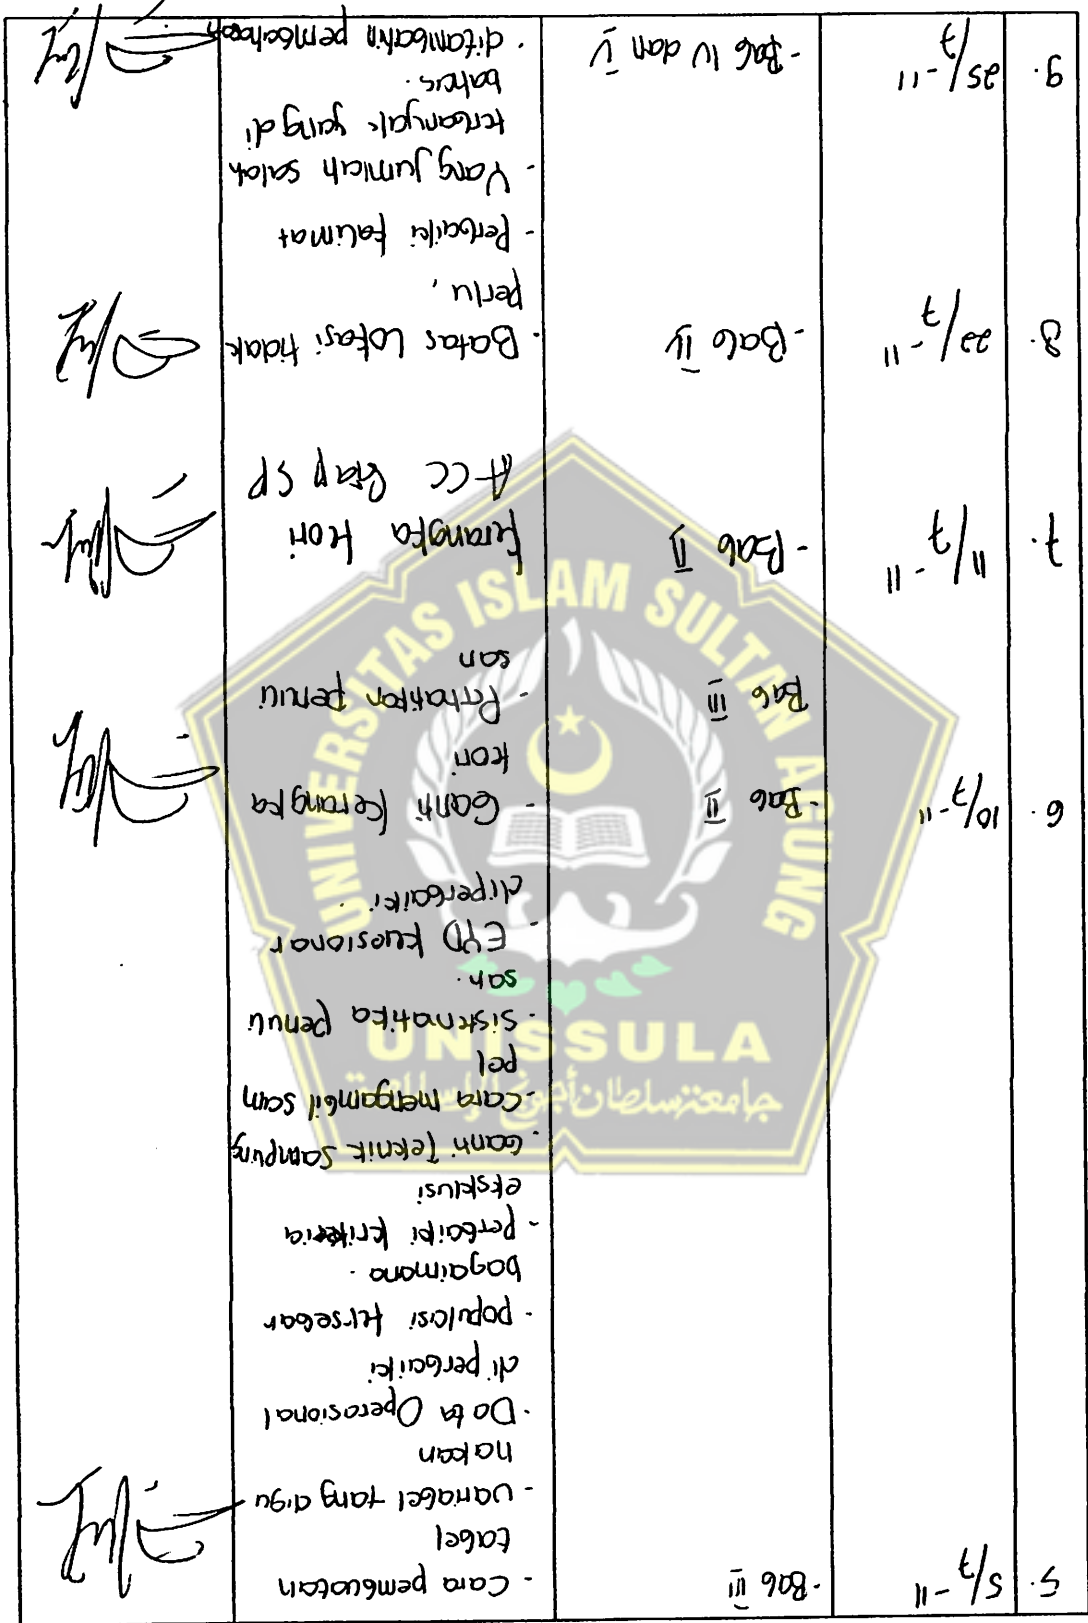 5.
5/7 - 11
- Bab III
- Cara pembuatan
tabel
- Variabel yang digu
nakan
- Data Operasional
di perbaiki
- populasi tersebar
bagaimana.
- perbaiki kriteria
eksklusi
- Ganti Teknik Sampling
- Cara mengambil sam
pel
- Sistematika penuli
san.
- EYD kuesionar
diperbaiki.
6.
10/7 - 11
- Bab II
Bab III
- Ganti Kerangka
teori
- Perhatikan penuli
san
7.
11/7 - 11
- Bab II
Kerangka teori
ACC Siap SP
8.
22/7 - 11
- Bab IV
- Batas Lokasi tidak
perlu,
- Perbaiki kalimat
- Yang jumlah salah
terbanyak yang di
bahas.
9.
25/7 - 11
- Bab IV dan V
- ditambahn pembahasan
UNIVERSITAS ISLAM SULTAN AGUNG
UNISSULA
جامعة سلطان أجونج الإسلامية